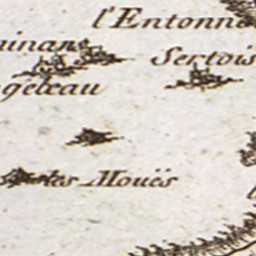 l'Entonne
minans
Sertois
gebeau
les Mouës